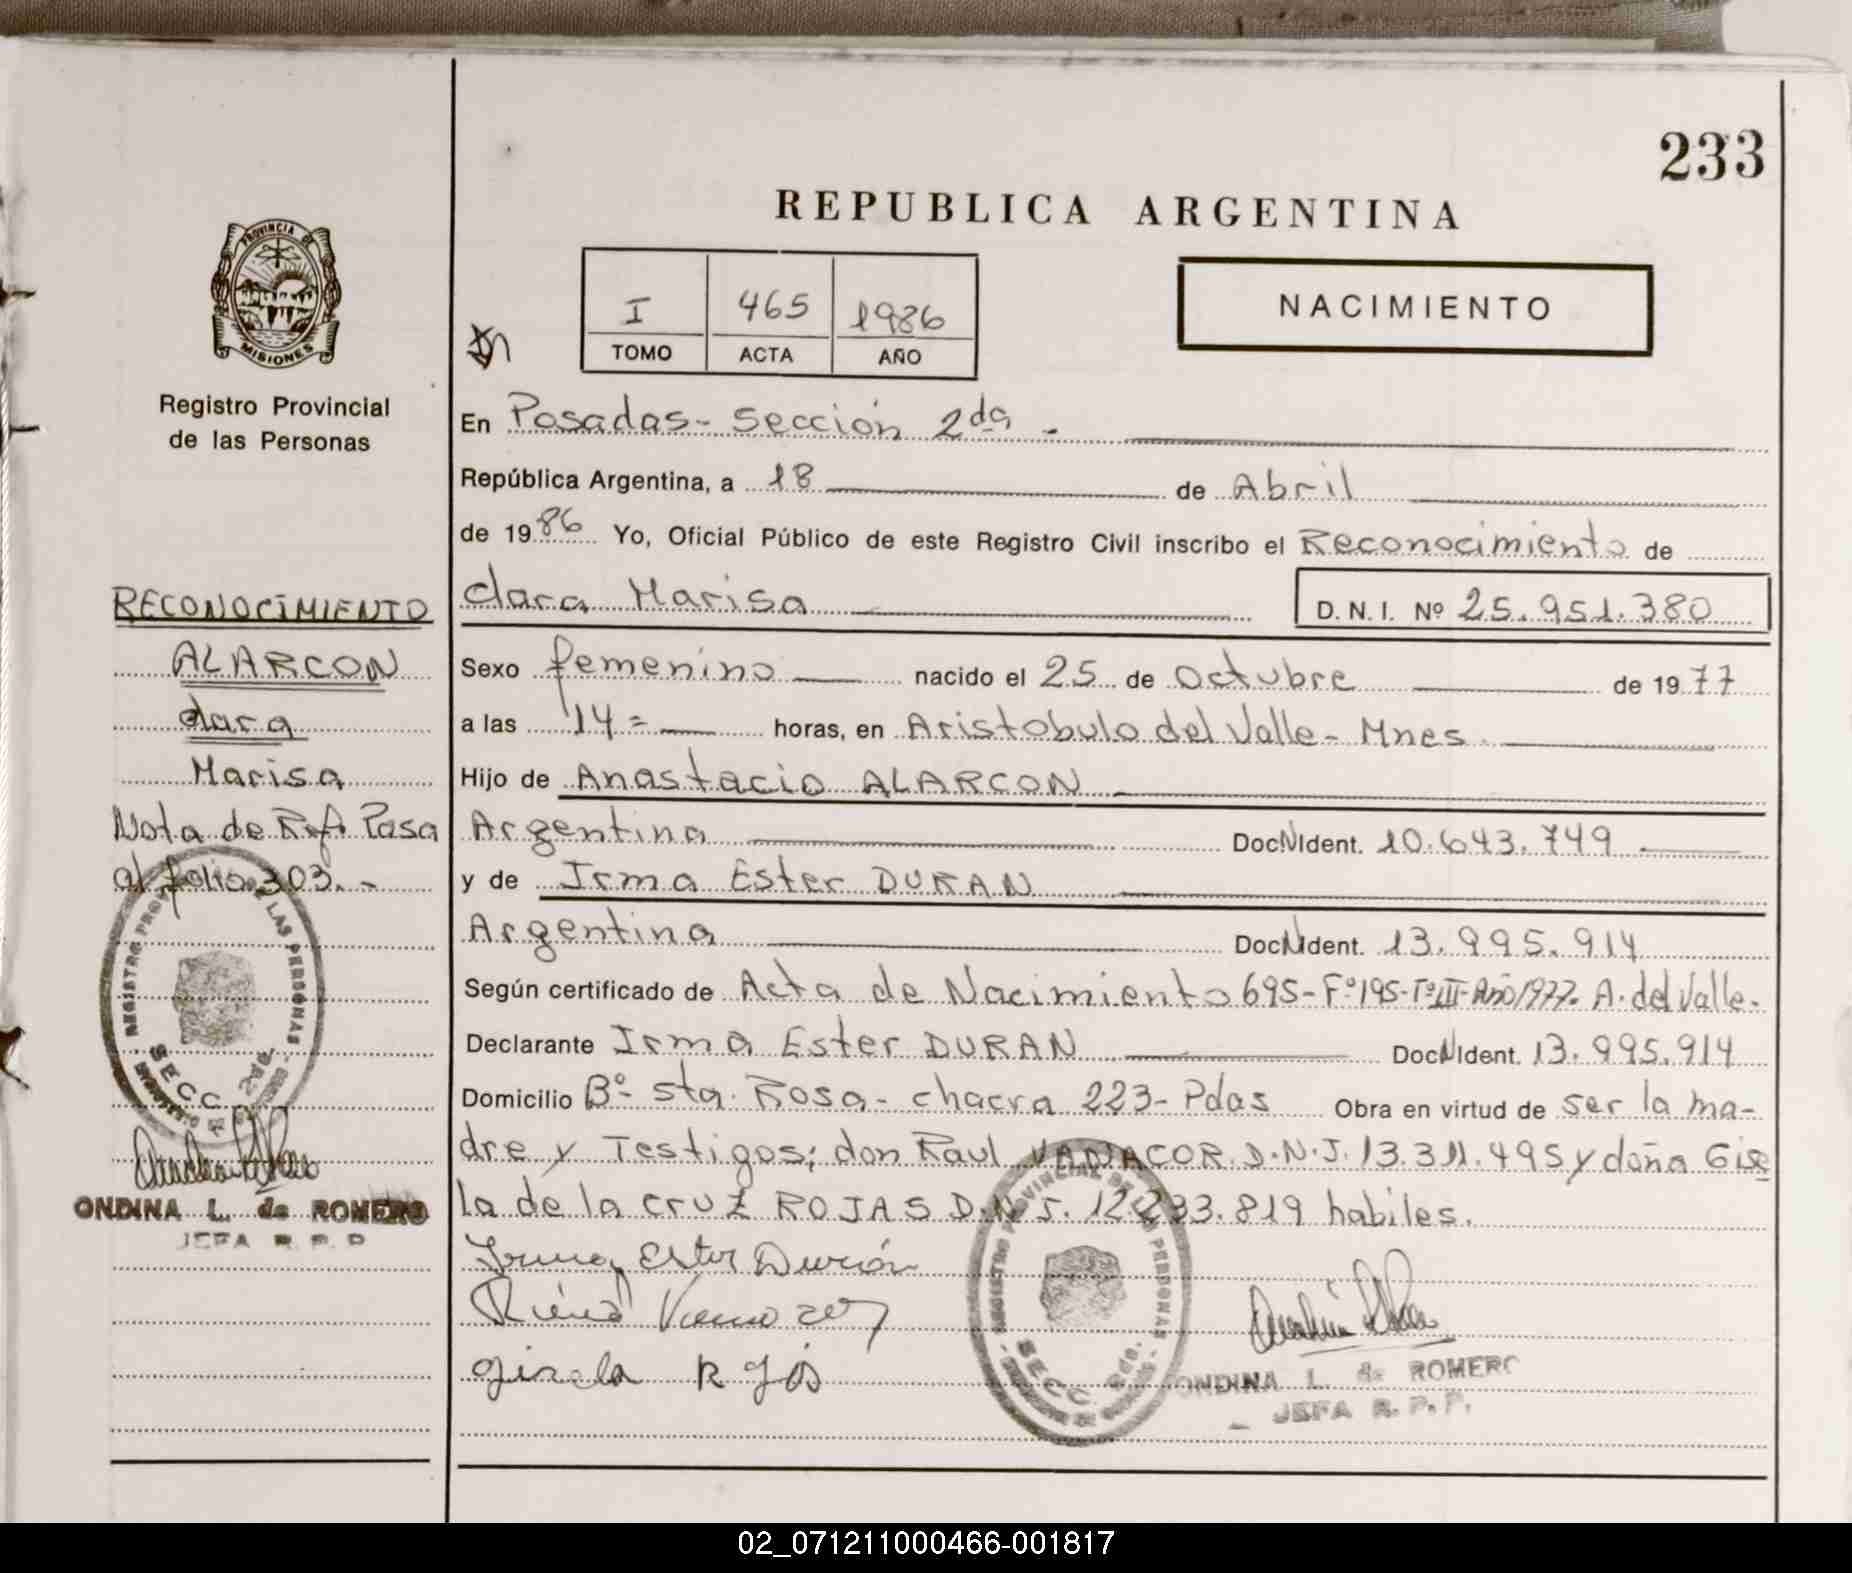 233
REPUBLICA ARGENTINA
PROVINCIA DE
MISIONES
Registro Provincial
de las Personas
I 465 1986
TOMO ACTA AÑO
NACIMIENTO
En Posadas- Sección 2da -
República Argentina, a 18 de Abril
de 1986 Yo, Oficial Público de este Registro Civil inscribo el Reconocimiento de
Clara Marisa D.N.I. Nº 25.951.380
Sexo femenino nacido el 25 de Octubre de 1977
a las 14= horas, en Aristobulo del Valle - Mnes.
Hijo de Anastacio ALARCON
Argentina Doc N Ident. 10.643.749
y de Irma Ester DURAN
Argentina Doc N Ident. 13.995.914
Según certificado de Acta de Nacimiento 695-Fº195-TºIII-Año1977. A. del Valle.
Declarante Irma Ester DURAN Doc N Ident. 13.995.914
Domicilio Bº Sta. Rosa - chacra 223- Pdas Obra en virtud de ser la ma-
dre y Testigos; don Raul D.N.I. 13.311.495 y doña Gise
la de la CRUZ ROJAS D.N.I. 12.233.819 habiles.
Irma Ester Durán
Gisela
ONDINA L. de ROMERO
JEFA R. P. P.
REGISTRO PROVINCIAL DE LAS PERSONAS
SECC. 2da.
RECONOCIMIENTO
ALARCON
Clara
Marisa
Nota de Ref. Pasa
al folio 303. -
REGISTRO PROVINCIAL DE LAS PERSONAS
SECC. 2da.
ONDINA L. de ROMERO
JEFA R. P. P.
02_071211000466-001817